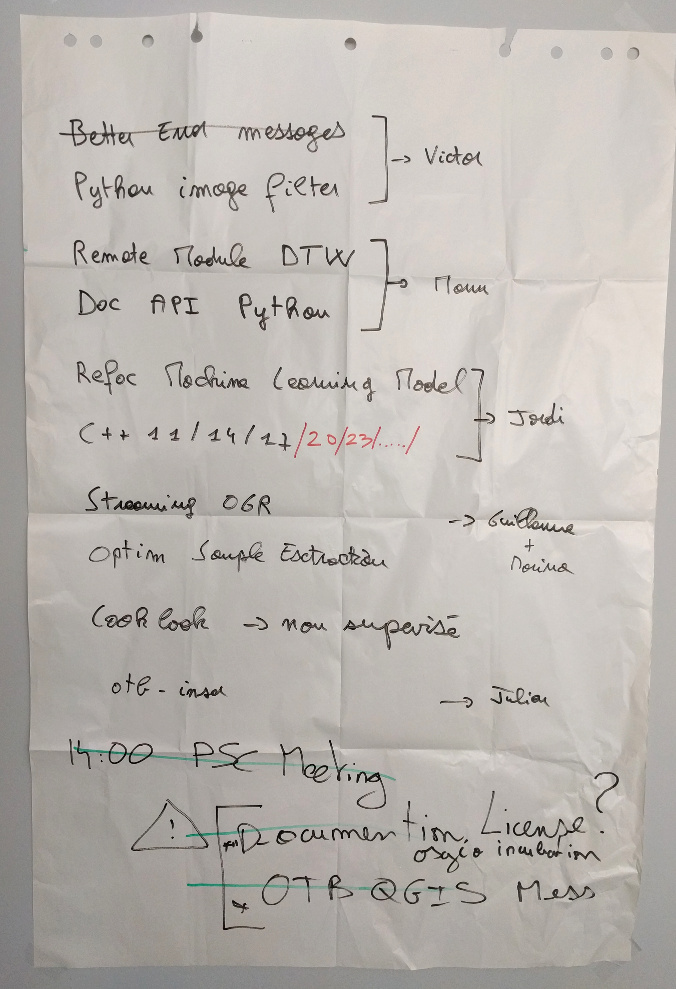 Better Error messages
Python image filter
→ Victor
Remote Module DTW
Doc API Python
→ Manu
Refac Machine Learning Model
C++ 11/14/17/20/23/..../
→ Jordi
Streaming OGR
Optim Sample Extraction
→ Guillaume
+
Marina
Cook look → non supervisé
otb-insa → Julien
14:00 PSC Meeting
! Documention, License?
osgeo incubation
OTB QGIS Mess